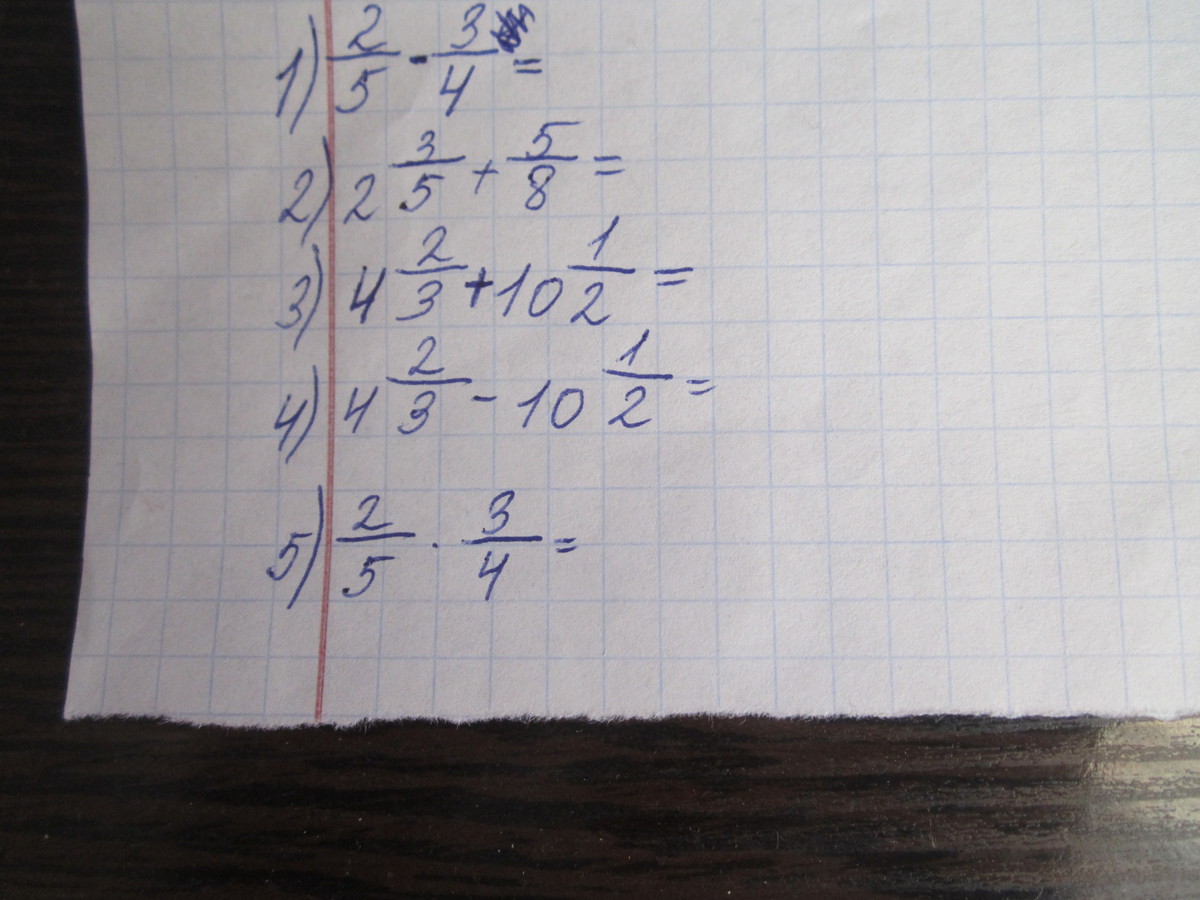 1) 2/5 - 3/4 =
2) 2 3/5 + 5/8 =
3) 4 2/3 + 10 1/2 =
4) 4 2/3 - 10 1/2 =
5) 2/5 · 3/4 =